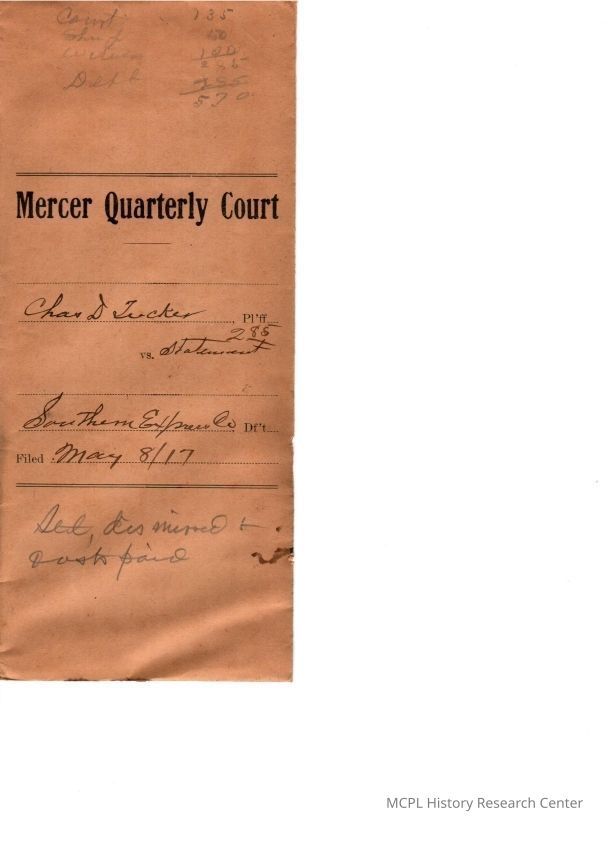 Court 135
Shrf 50
Witness 100
Debt 285
570
Mercer Quarterly Court
Chas D Tucker, Pl'ff
285
vs. Statement
Southern Express Co Df't
Filed May 8/17
Setd, dismissed &
costs paid
MCPL History Research Center